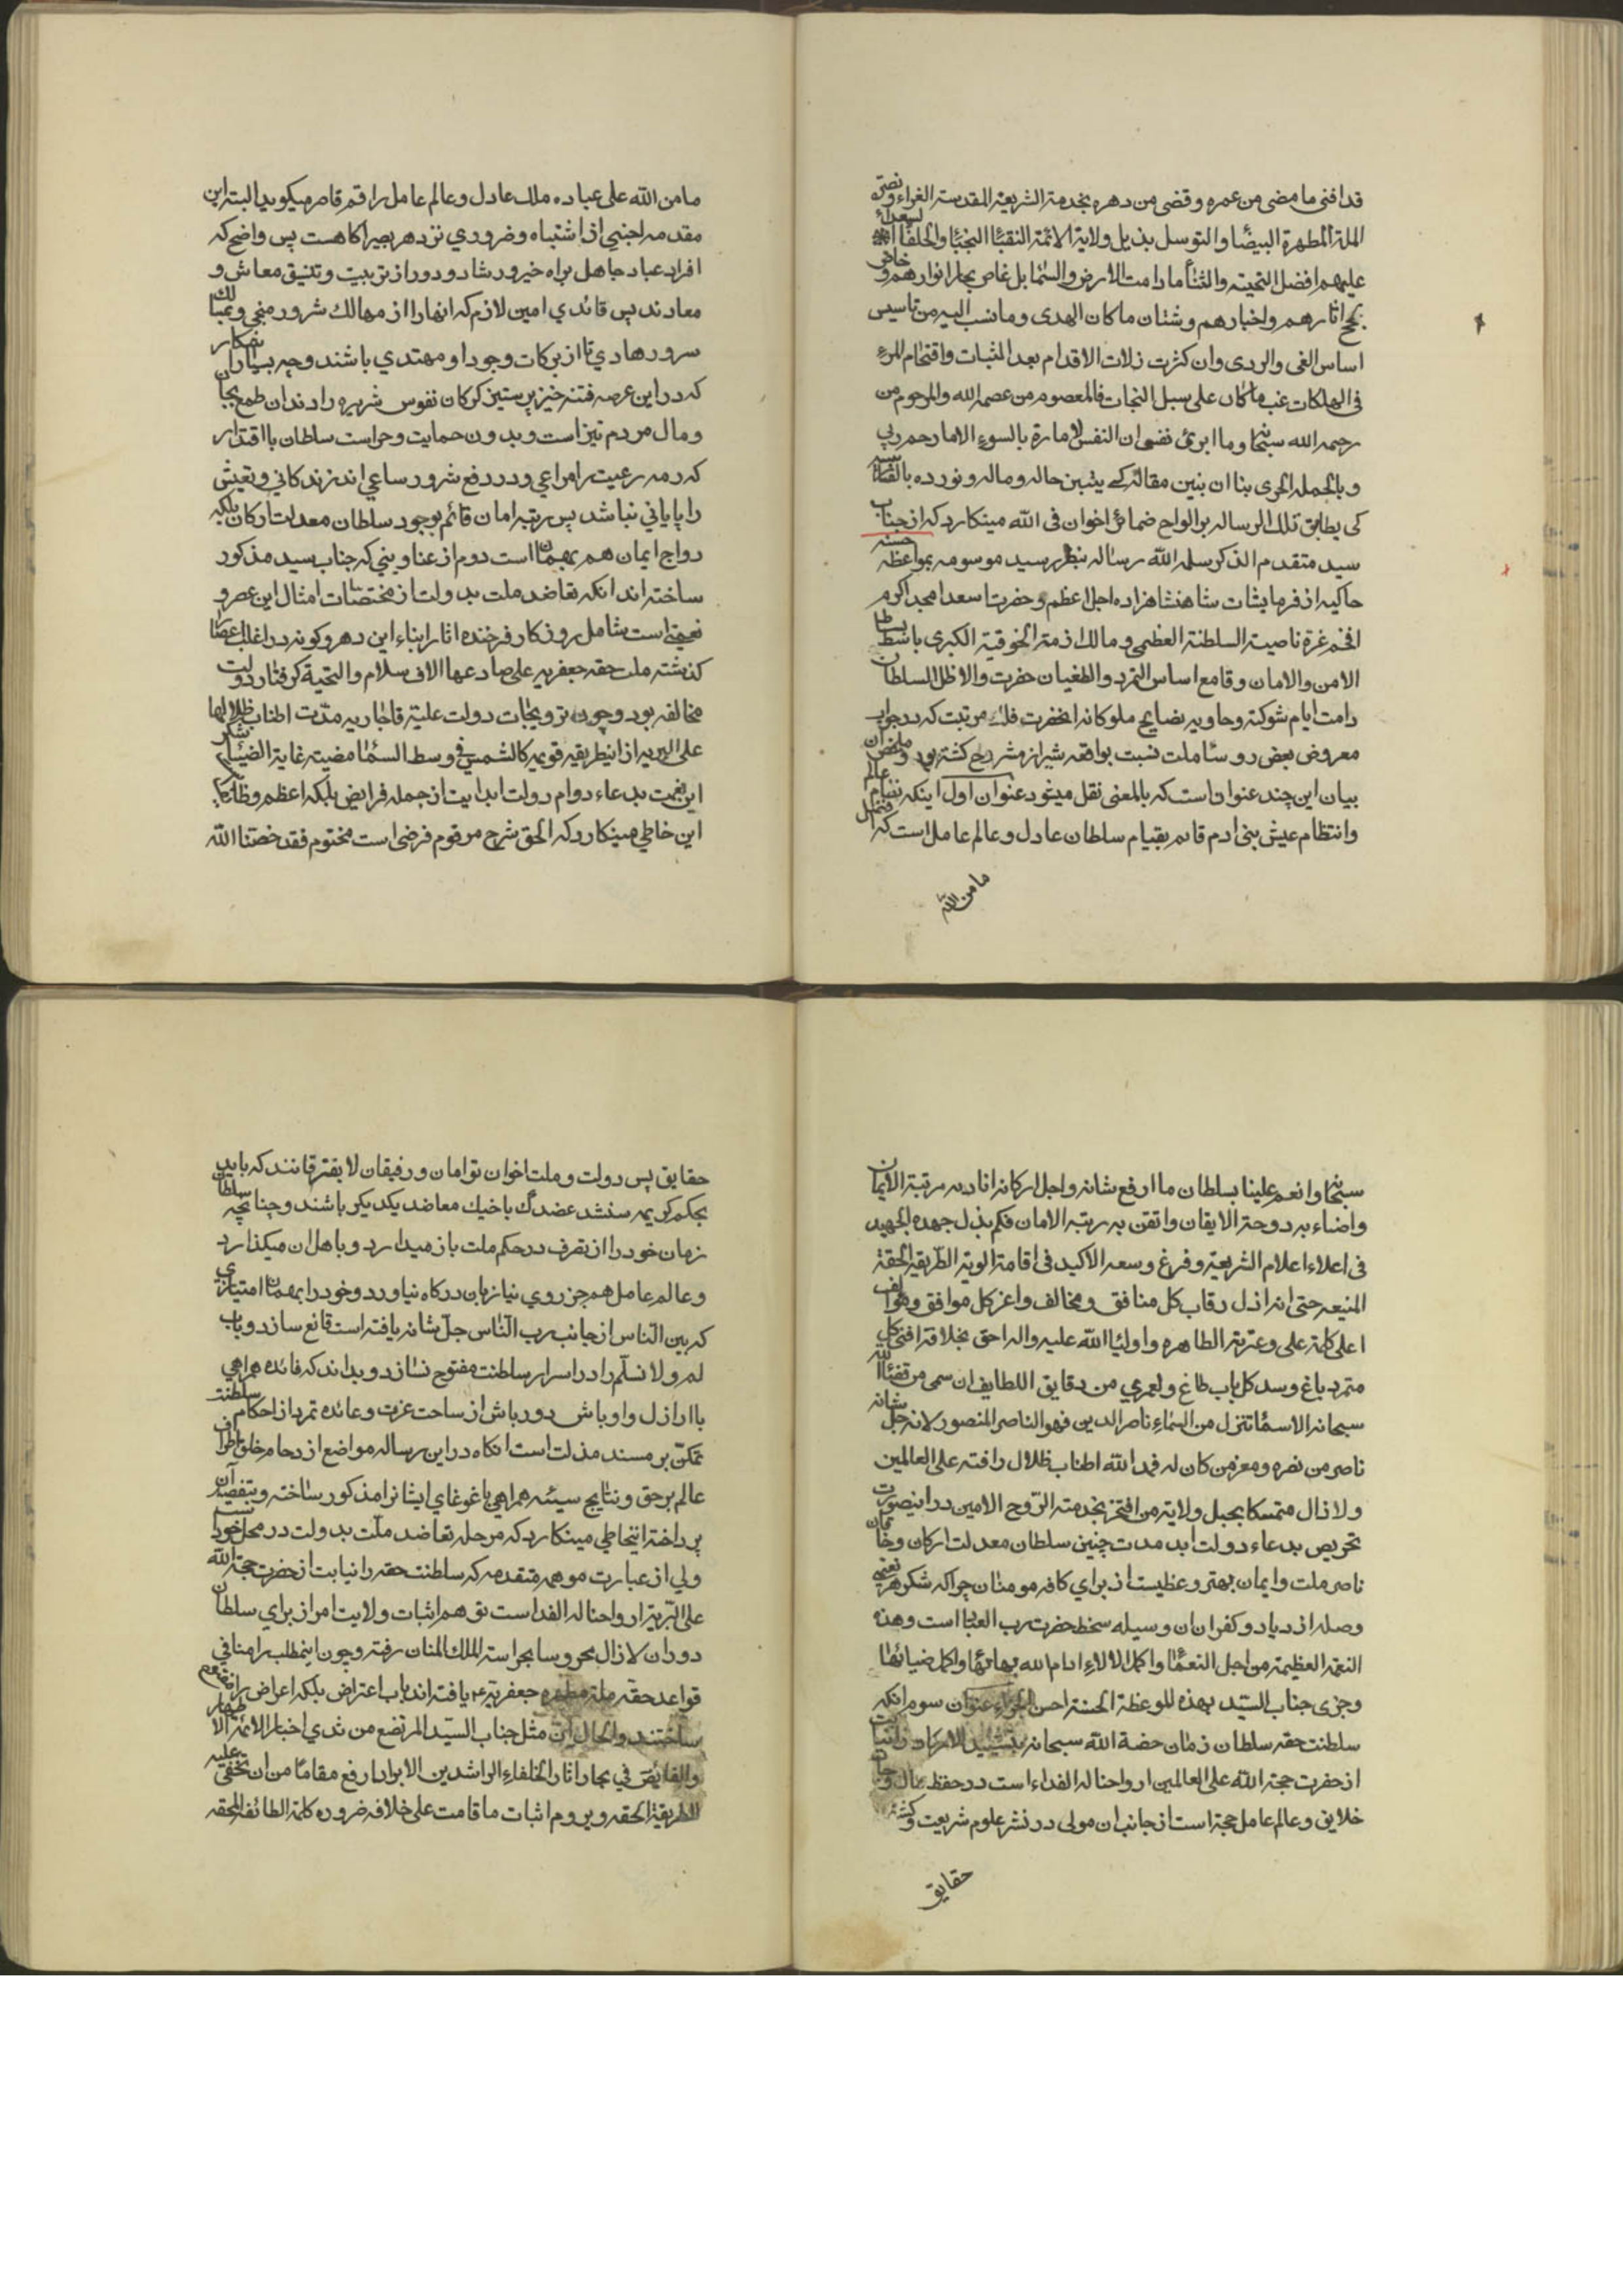 قد افنی ما مضی من عمره و قضی من دهره بخدمة الشریعة المقدسة الغراء و نصرة
الملة المطهرة البیضا و التوسل بذیل ولایة الائمة النقبا النجبا و الخلفا السعداء
علیهم افضل التحیة و الثنا ما دامت الارض و السما بل غاص بحار انوارهم و خاض
لجج اثارهم و اخبارهم و شتان ما کان الهدی و ما نسب الیه من تاسیس
اساس الغی و الردی و ان کثرت زلات الاقدام بعد المثبات و اقتحام المرء
فی الهلکات غب ما کان علی سبل النجات فالمعصوم من عصمه الله و المرحوم من
رحمه الله سبحانه و ما ابرئ نفسی ان النفس لامارة بالسوء الا ما رحم ربی
و بالجمله الحری بنا ان نبین مقالته کے یتبین حاله و ماله و نورده بالفارسیه
کی یطابق تلک الرساله بر الواح ضمائر اخوان فی الله مینکارد که از جناب
سید متقدم الذکر سلمه الله رساله بنظر رسید موسومه بمواعظه حسنه
حاکیه از فرمایشات شاهنشاهزاده اجل اعظم و حضرت اسعد امجد اکرم
افخم غرة ناصیة السلطنة العظمی و مالک ازمة الخوقیة الکبری باسط بساط
الامن و الامان و قامع اساس التمرد و الطغیان حضرت والا ظل السلطان
دامت ایام شوکته و حاویه نصایح ملوکانه انحضرت فلک مرتبت که در جواب
معروض بعض روسا ملت نسبت بواقعه شیراز مشروح کشته بود و ملخص ان
بیان این چند عنوان است که بالمعنی نقل میشود عنوان اول اینکه نظام عالم
و انتظام عیش بنی ادم قائم بقیام سلطان عادل و عالم عامل است که افضل
ما من الله
ما من الله علی عباده ملک عادل و عالم عامل راقم قاصر میکوید البته این
مقدمه اجنبی از اشتباه و ضروری نزد هر بصیر اکاهست پس واضح که
افراد عباد جاهل براه خیر و رشاد و دور از تربیت و تنسیق معاش و
معادند پس قائدی امین لازم که انها را از مهالک شرور منجی و بمسالک
سرور هادی تا از برکات وجود او مهتدی باشند و چه بسیار اشکار
که در این عرصه فتنه خیز پر ستیز کرکان نفوس شریره را دندان طمع بجان
و مال مردم تیز است و بدون حمایت و حراست سلطان با اقتدار
که رمه رعیت را مراعی و در رفع شرور ساعی اند زندکانی و تعیش
را پایانی نباشد پس رتبه امان قائم بوجود سلطان معدلت ارکان بلکه
رواج ایمان هم بهمان است دوم از عناوینی که جناب سید مذکور
ساخته اند انکه تعاضد ملت بدولت از مختصات امثال این عصر و
نعمتی است شامل روزکار فرخنده اثار ابناء این دهر و کونه در اغلب اعصار
کذشته ملت حقه جعفریه علی صادعها الاف سلام و التحیة کرفتار دولت
مخالفه بود و چون ترویجات دولت علیه قاجاریه مدت اطناب ظلالها
علی البریه از انیطریقه قویمه کالشمس فی وسط السما مضیئه غایة الضیا شکر
این نعمت بدعاء دوام دولت ابدایت از جمله فرایض بلکه اعظم وظائف
این خاطی مینکارد که الحق شرح مرقوم فرضی است مختوم فقد خصنا الله
سبحانه و انعم علینا بسلطان ما ارفع شانه و اجل ارکانه انار به مرتبة الایمان
و اضاء به دوحة الایقان و اتقن به رتبه الامان فکم بذل جهده الجهید
فی اعلاء اعلام الشریعة و فرغ وسعه الاکید فی اقامة الویة الطریقة الحقة
المنیعه حتی انه اذل رقاب کل منافق و مخالف و اعز کل موافق و موالف
اعلی کلمة علی و عترته الطاهره و اولیا الله علیه و اله احق بخلافة افنی کل
متمرد باغ و سد کل باب طاغ و لعمری من دقایق اللطایف ان سمی من قضاء الله
سبحانه الاسما تنزل من السماء ناصر الدین فهو الناصر المنصور لانه جل شانه
ناصر من نصره و معز من کان له فمد الله اطناب ظلال رافته علی العالمین
و لا زال متمسکا بحبل ولایة من افتخر بخدمته الروح الامین در اینصورت
تحریص بدعاء دولت ابد مدت چنین سلطان معدلت ارکان و خاقان
ناصر ملت و ایمان بهتر وعظیست از برای کافه مومنان چرا که شکر هر نعمتی
وصله ازدیاد و کفران ان وسیله سخط حضرت رب العباد است و هذه
النعمة العظیمة من اجل النعما و اکمل الالاء ادام الله بهائها و اکمل ضیائها
و جزی جناب السید بهذه الموعظة الحسنة احسن الجزاء عنوان سوم انکه
سلطنت حقه سلطان زمان خصه الله سبحانه بتشیید الارکان نیابت
از حضرت حجة الله علی العالمین ارواحنا له الفداء است در حفظ مال و جان
خلایق و عالم عامل حجة است از جانب ان مولی در نشر علوم شریعت و کشف
حقایق
حقایق پس دولت و ملت اخوان توامان و رفیقان لا یفترقانند که باید
بحکم کریمه سنشد عضدک باخیک معاضد یکدیکر باشند و چنانچه سلطان
زمان خود را از تصرف در حکم ملت باز میدارد و باهل ان میکذارد
و عالم عامل هم جز روی نیاز بان درکاه نیاورد و خود را بهمان امتیازی
که بین الناس از جانب رب الناس جل شانه یافته است قانع سازد و باب
لم و لا نسلم را در اسرار سلطنت مفتوح نسازد و بداند که فائده همراهی
با ارازل و اوباش دور باش از ساحت عزت و عائده تمرد از احکام سلطنت
تمکن بر مسند مذلت است انکاه در این رساله مواضع ازدحام خلق اطراف
عالم بر حق و نتایج سیئه همراهی با غوغای ایشانرا مذکور ساخته و بتفصیل آن
پرداخته اینخاطی مینکارد که مرحله تعاضد ملت بدولت در محل خود
ولی از عبارت موهمه متقدمه که سلطنت حقه را نیابت از حضرت حجة الله
علی البریة ارواحنا له الفداست توهم اثبات ولایت امر از برای سلطان
دوران لا زال محروسا بحراسة الملک المنان رفته و چون اینمطلب را منافی
قواعد حقه ملة مطهره جعفریه ع یافته اند باب اعتراض بلکه اعراض را مفتوح
ساختند و الحال ان مثل جناب السید المرتضع من ثدی اخبار الائمة الاطهار
و الغایص فی بحار اثار الخلفاء الراشدین الابرار ارفع مقاما من ان تخفی علیه
الطریقة الحقه و یروم اثبات ما قامت علی خلافه ضروره کلمة الطائفة المحقه